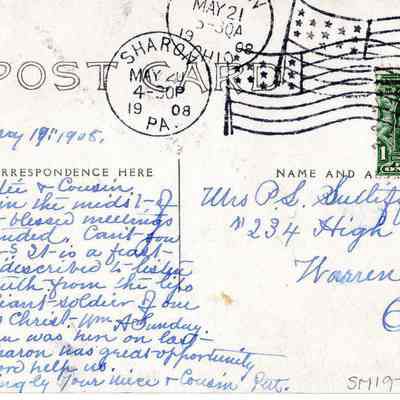 MAY 21
5-30A
19 08
OHIO
SHARON
MAY 20
4-30P
19 08
PA.
POST CARD
1
ay 19th 1908.
RRESPONDENCE HERE
NAME AND A
& Cousin.
in the midst of
blessed meetings
nded. Can't you
It is a feast
described to listen
uth from the lips
iant soldier of our
s Christ - Wm A Sunday.
was here on last
aron was great opportunity
ord help us.
ngly Your niece & Cousin Pat.
Mrs P.S.
#234 High
Warren
O
SM19